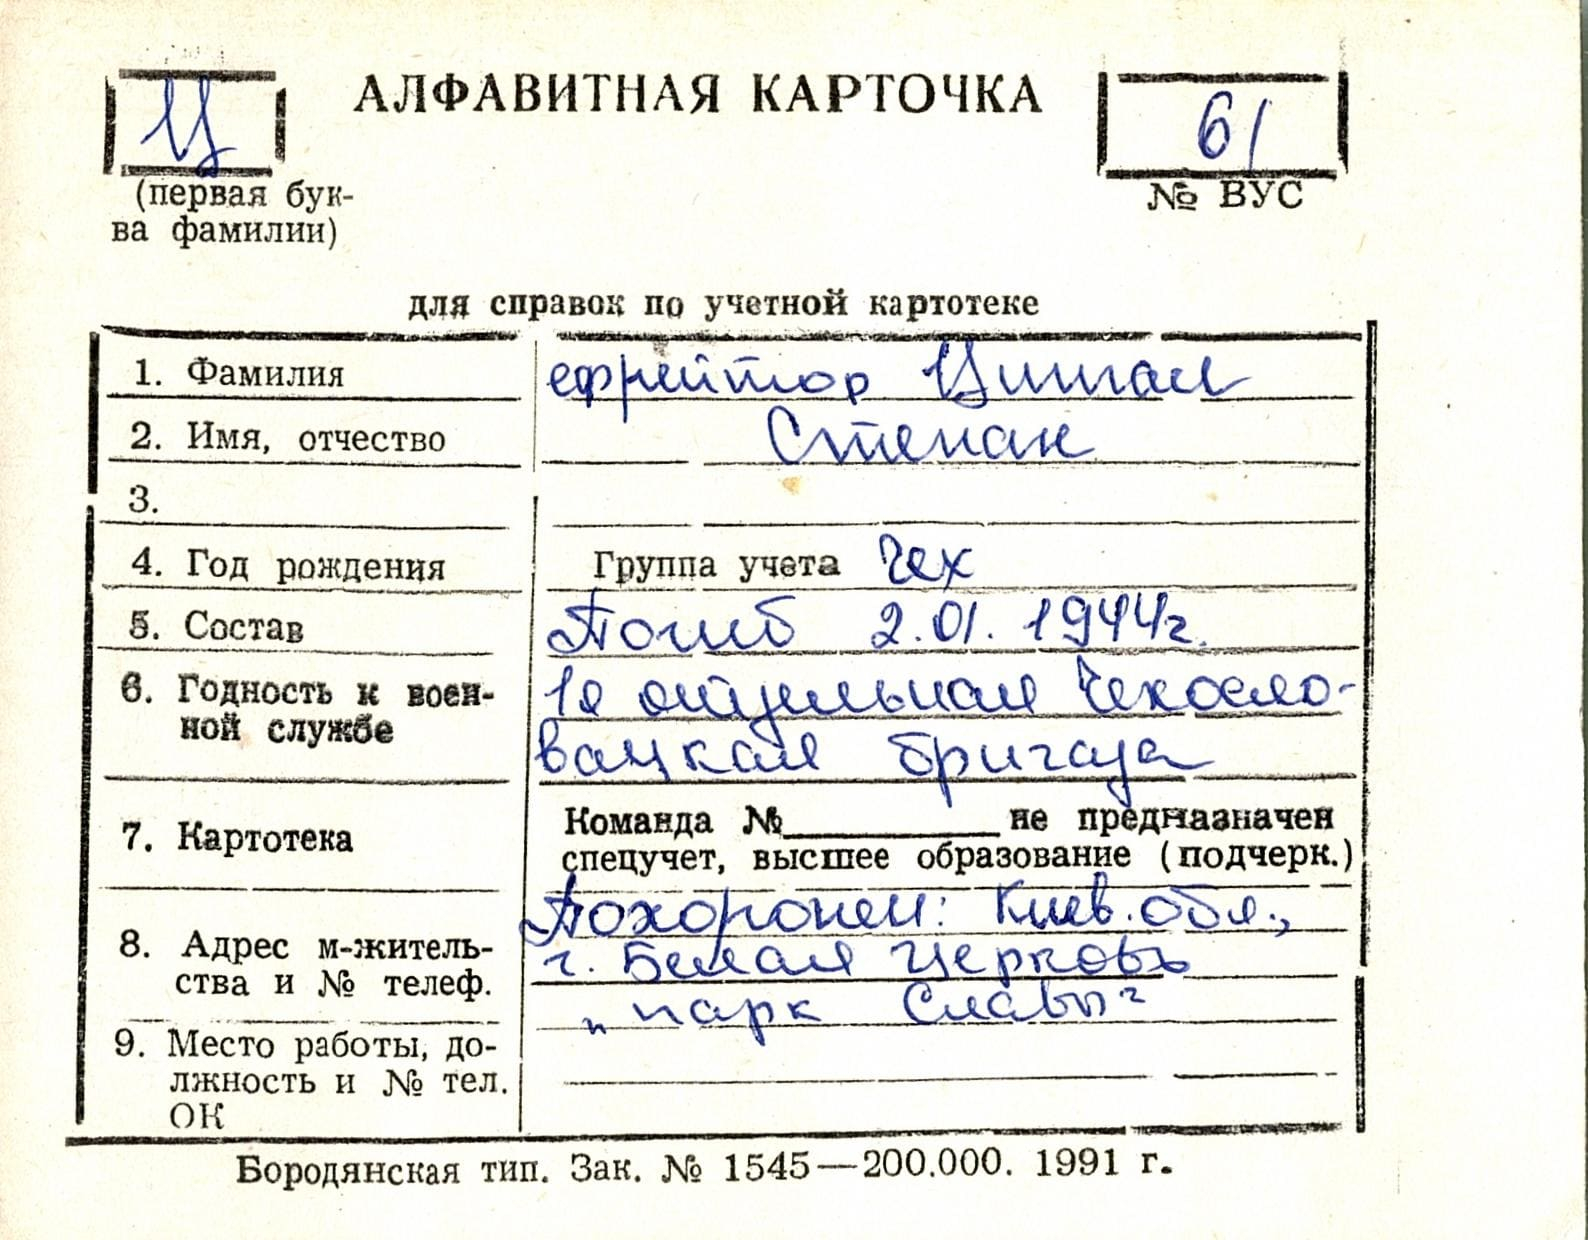 Ц
АЛФАВИТНАЯ КАРТОЧКА
61
(первая бук-
ва фамилии)
№ ВУС
для справок по учетной картотеке
1. Фамилия ефрейтор Цингал
2. Имя, отчество Степан
3.
4. Год рождения Группа учета Чех
5. Состав Погиб 2.01.1944г.
6. Годность к воен-
ной службе
1я отдельная Чехосло-
вацкая бригада
7. Картотека
Команда №__________не предназначен
спецучет, высшее образование (подчерк.)
8. Адрес м-житель-
ства и № телеф.
Похоронен: Киев. обл.,
г. Белая Церковь
"парк Славы"
9. Место работы, до-
лжность и № тел.
ОК
Бородянская тип. Зак. № 1545—200.000. 1991 г.